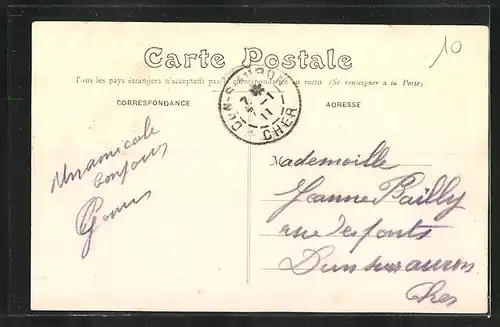 10
Carte Postale
Tous les pays étrangers n'acceptent pas la correspondance au recto (Se renseigner à la Poste)
CORRESPONDANCE
ADRESSE
DUN-S-AURON
7 -1
11
CHER
Un amicale
bonjour
Mademoille
Jeanne Bailly
rue des ponts
Dun sur auron
Cher